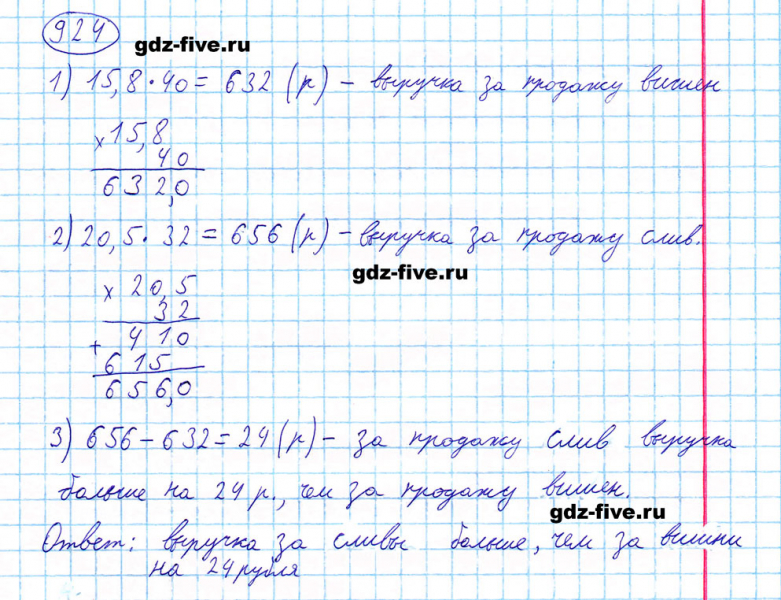 924
gdz-five.ru
1) 15,8 · 40 = 632 (р) – выручка за продажу вишен
× 15,8
40
632,0
2) 20,5 · 32 = 656 (р) – выручка за продажу слив.
gdz-five.ru
× 20,5
32
+ 410
615
656,0
3) 656 – 632 = 24 (р) – за продажу слив выручка
больше на 24 р., чем за продажу вишен.
gdz-five.ru
Ответ: выручка за сливы больше, чем за вишни
на 24 рубля